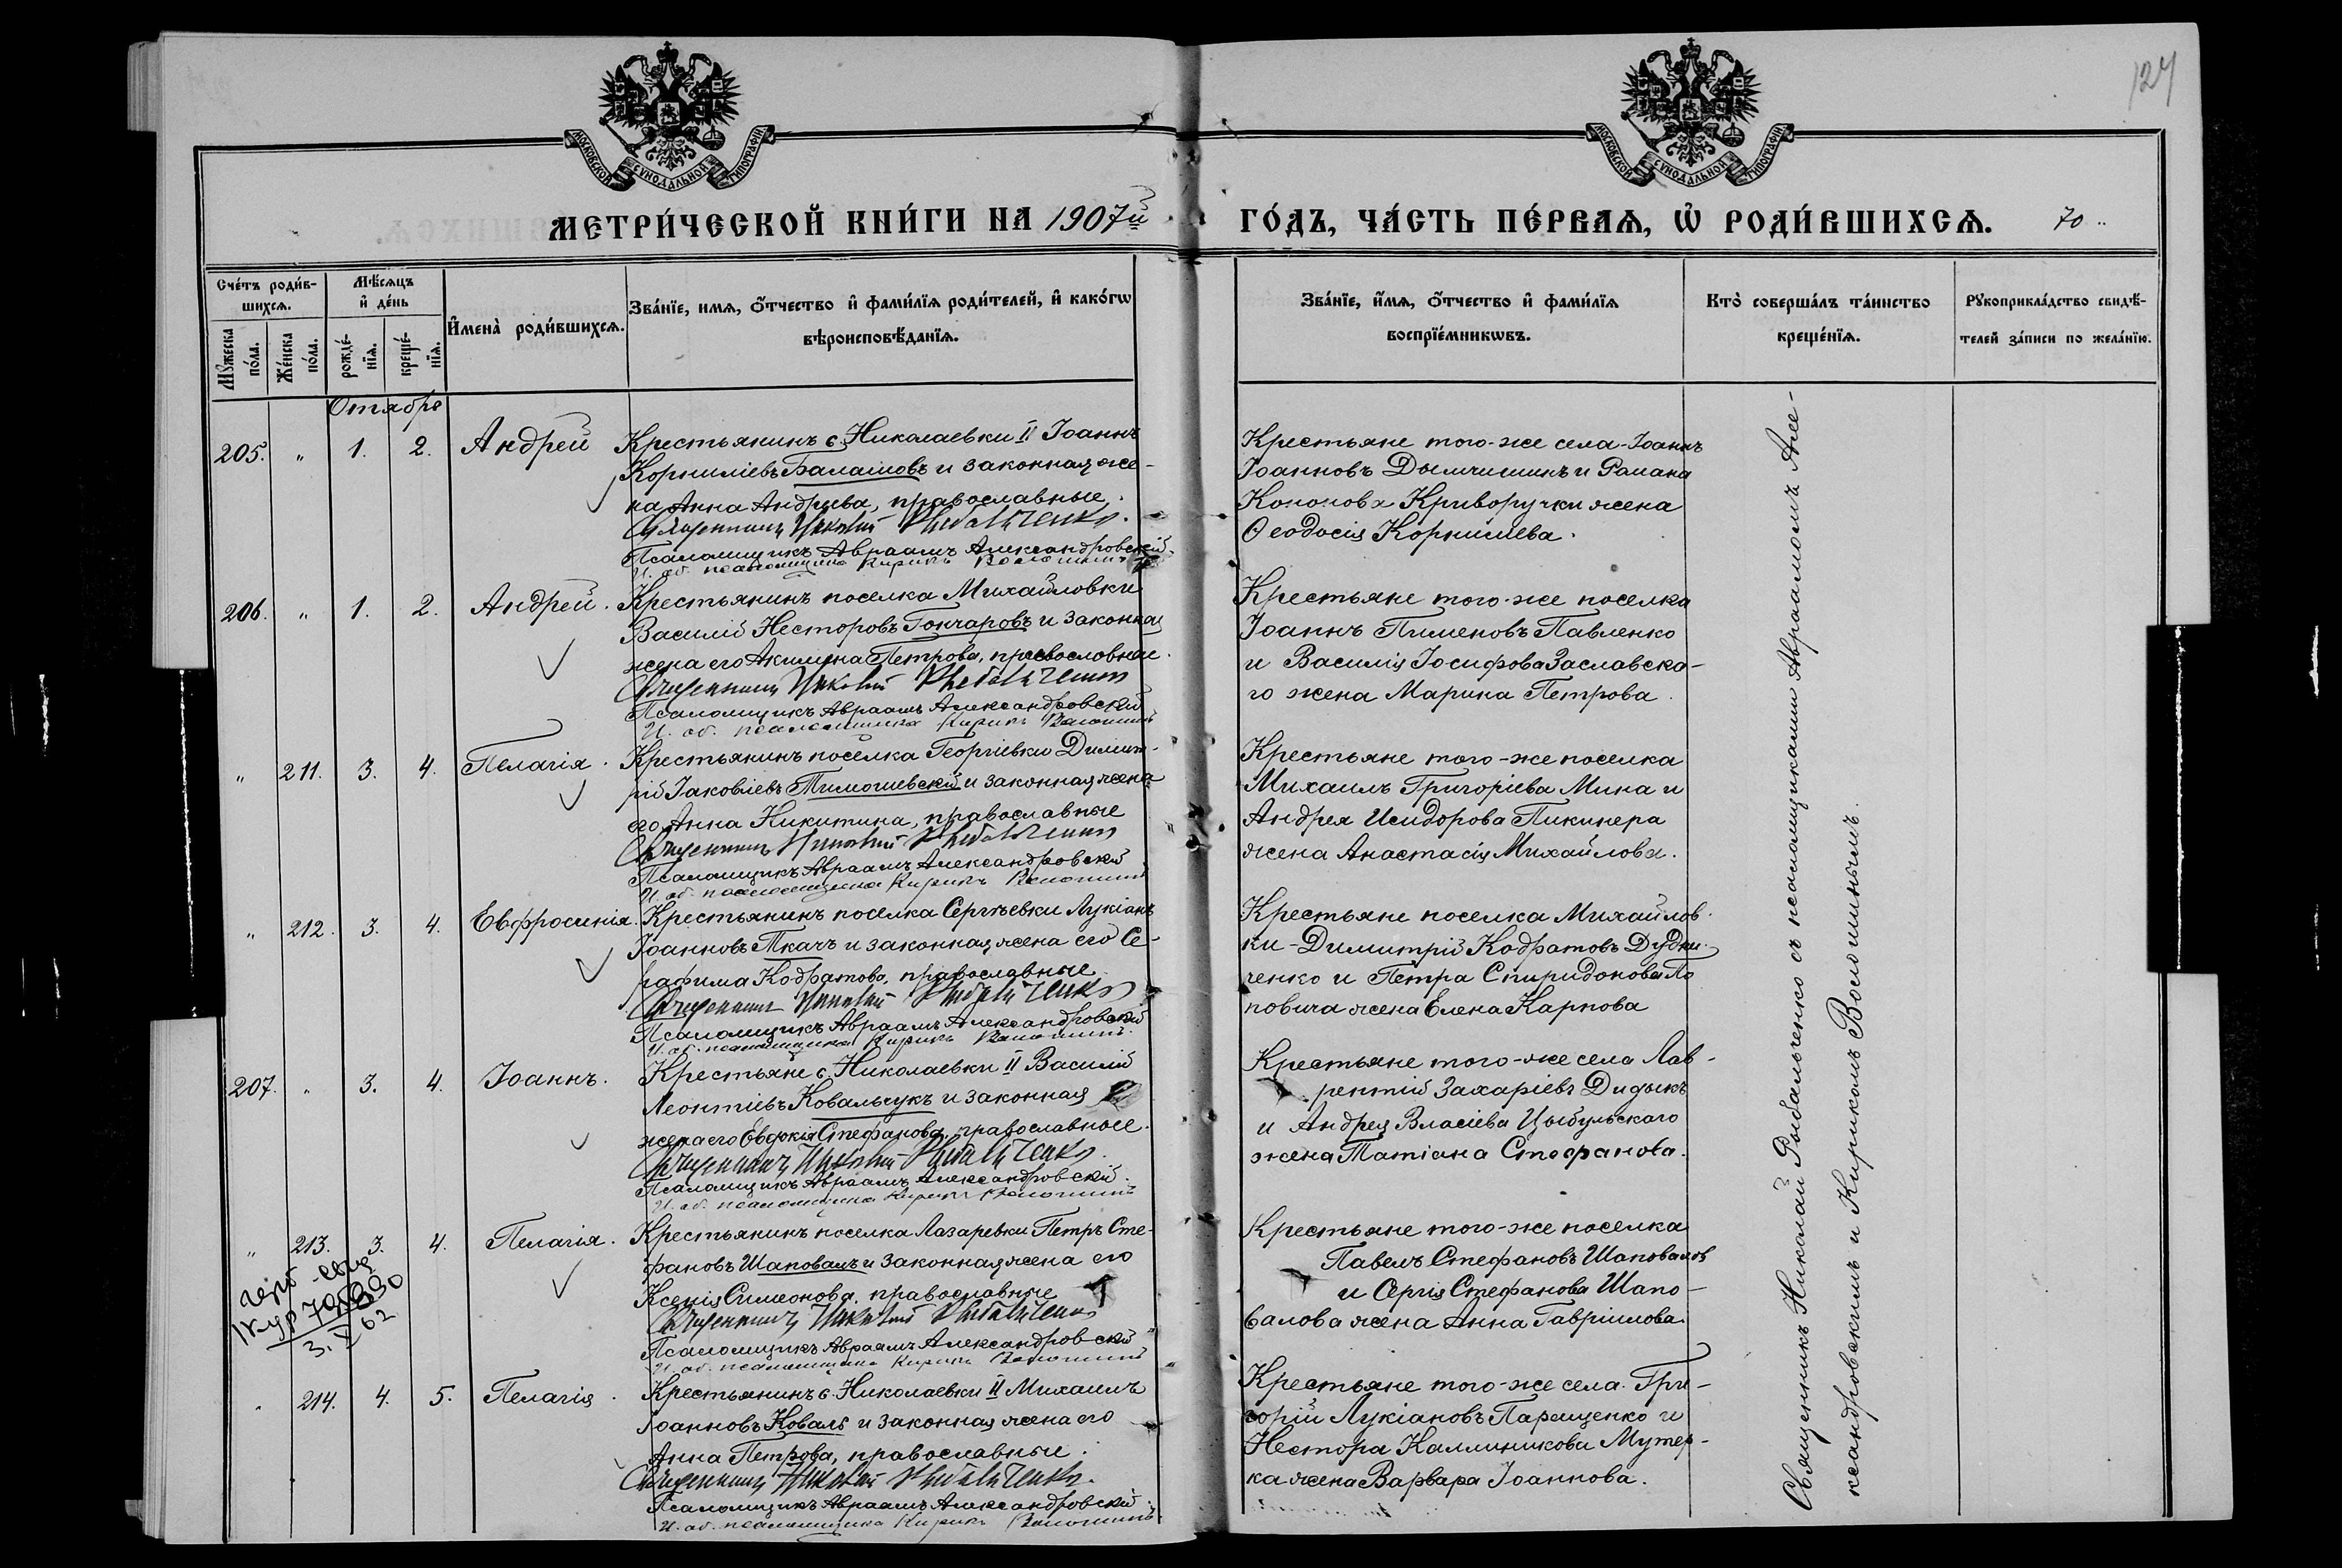 127
МОСКОВСКОЙ СУНОДАЛЬНОЙ ТИПОГРАФІИ
МОСКОВСКОЙ СУНОДАЛЬНОЙ ТИПОГРАФІИ
МЕТРИ́ЧЕСКОЙ КНИ́ГИ НА 1907й
ГО́ДЪ, ЧА́СТЬ ПЕ́РВАѦ, Ѽ РОДИ́ВШИХСѦ. 70
Сче́тъ роди́в-
шихсѧ.
Мѣ́сѧцъ
и҆ де́нь
Мꙋ́жеска
по́ла.
Же́нска
по́ла.
рожде́-
нїѧ.
креще́-
нїѧ.
И҆мена̀ роди́вшихсѧ.
Зва́нїе, имѧ, ѻ҆́тчество и҆ фами́лїѧ роди́телей, и҆ како́гѡ
вѣроисповѣ́данїѧ.
Зва́нїе, и҆́мѧ, ѻ҆́тчество и҆ фами́лїѧ
воспрїе́мникѡвъ.
Кто̀ соверша́лъ та́инство
креще́нїѧ.
Рꙋкоприкла́дство свидѣ́-
телей за́писи по жела́нїю.
Отября
205. " 1. 2. Андрей
Крестьянинъ с. Николаевки II Іоаннъ
Корниліевъ Балашовъ и законная же-
на Анна Андреева, православные.
Священникъ Николай Рыбальченко.
Псаломщикъ Авраамъ Александровскій.
И. об. псаломщика Кирикъ Волошинъ
Крестьяне того-же села-Іоаннъ
Іоанновъ Дымчишинъ и Романа
Кононова Криворучки жена
Ѳеодосія Корнилиева.
206. " 1. 2. Андрей.
Крестьянинъ поселка Михайловки
Василій Несторовъ Гончаровъ и законная
жена его Акилина Петрова, православные.
Священникъ Николай Рыбальченко
Псаломщикъ Авраамъ Александровскій
И. об. псаломщика Кирикъ Волошинъ
Крестьяне того-же поселка
Іоаннъ Пименовъ Павленко
и Василія Іосифова Заславска-
го жена Марина Петрова.
" 211. 3. 4. Пелагія.
Крестьянинъ поселка Георгіевки Димит-
рій Іаковлевъ Тимошевскій и законная жена
его Анна Никитина, православные
Священникъ Николай Рыбальченко
Псаломщикъ Авраамъ Александровскій
И. об. псаломщика Кирикъ Волошинъ
Крестьяне того-же поселка
Михаилъ Григоріева Мина и
Андрея Исидорова Пикинера
жена Анастасія Михайлова.
" 212. 3. 4. Евфросинія.
Крестьянинъ поселка Сергѣевки Лукіанъ
Іоанновъ Ткачъ и законная жена его Се-
рафима Кодратова, православные
Священникъ Николай Рыбальченко
Псаломщикъ Авраамъ Александровскій
И. об. псаломщика Кирикъ Волошинъ.
Крестьяне поселка Михайлов-
ки - Димитрій Кодратовъ Дудни-
ченко и Петра Спиридонова По
повича жена Елена Карпова
207. " 3. 4. Іоаннъ.
Крестьяне с. Николаевки II Василій
Леонтіевъ Ковальчукъ и законная
жена его Евдокія Стефанова, православные.
Священникъ Николай Рыбальченко.
Псаломщикъ Авраамъ Александровскій.
И. об. псаломщика Кирикъ Волошинъ
Крестьяне того-же села Лав-
рентій Захаріевъ Дидыкъ
и Андрея Власіева Цыбульскаго
жена Татіана Стефанова.
" 213. 3. 4. Пелагія.
3. X 62
Крестьянинъ поселка Лазаревки Петръ Сте-
фановъ Шаповалъ и законная жена его
Ксенія Симеонова, православные
Священникъ Николай Рыбальченко
Псаломщикъ Авраамъ Александровскій
И. об. псаломщика Кирикъ Волошинъ
Крестьяне того-же поселка
Павелъ Стефановъ Шаповаловъ
и Сергія Стефанова Шапо-
валова жена Анна Гавриилова.
" 214. 4. 5. Пелагія.
Крестьянинъ с. Николаевки II Михаилъ
Іоанновъ Коваль и законная жена его
Анна Петрова, православные.
Священникъ Николай Рыбальченко.
Псаломщикъ Авраамъ Александровскій.
И. об. псаломщика Кирикъ Волошинъ
Крестьяне того-же села. Гри-
горій Лукіановъ Паращенко и
Нестора Каллиникова Мутер-
ка жена Варвара Іоаннова.
Священникъ Николай Рыбальченко съ псаломщиками Авраамомъ Але-
ксандровскимъ и Кирикомъ Волошинымъ.